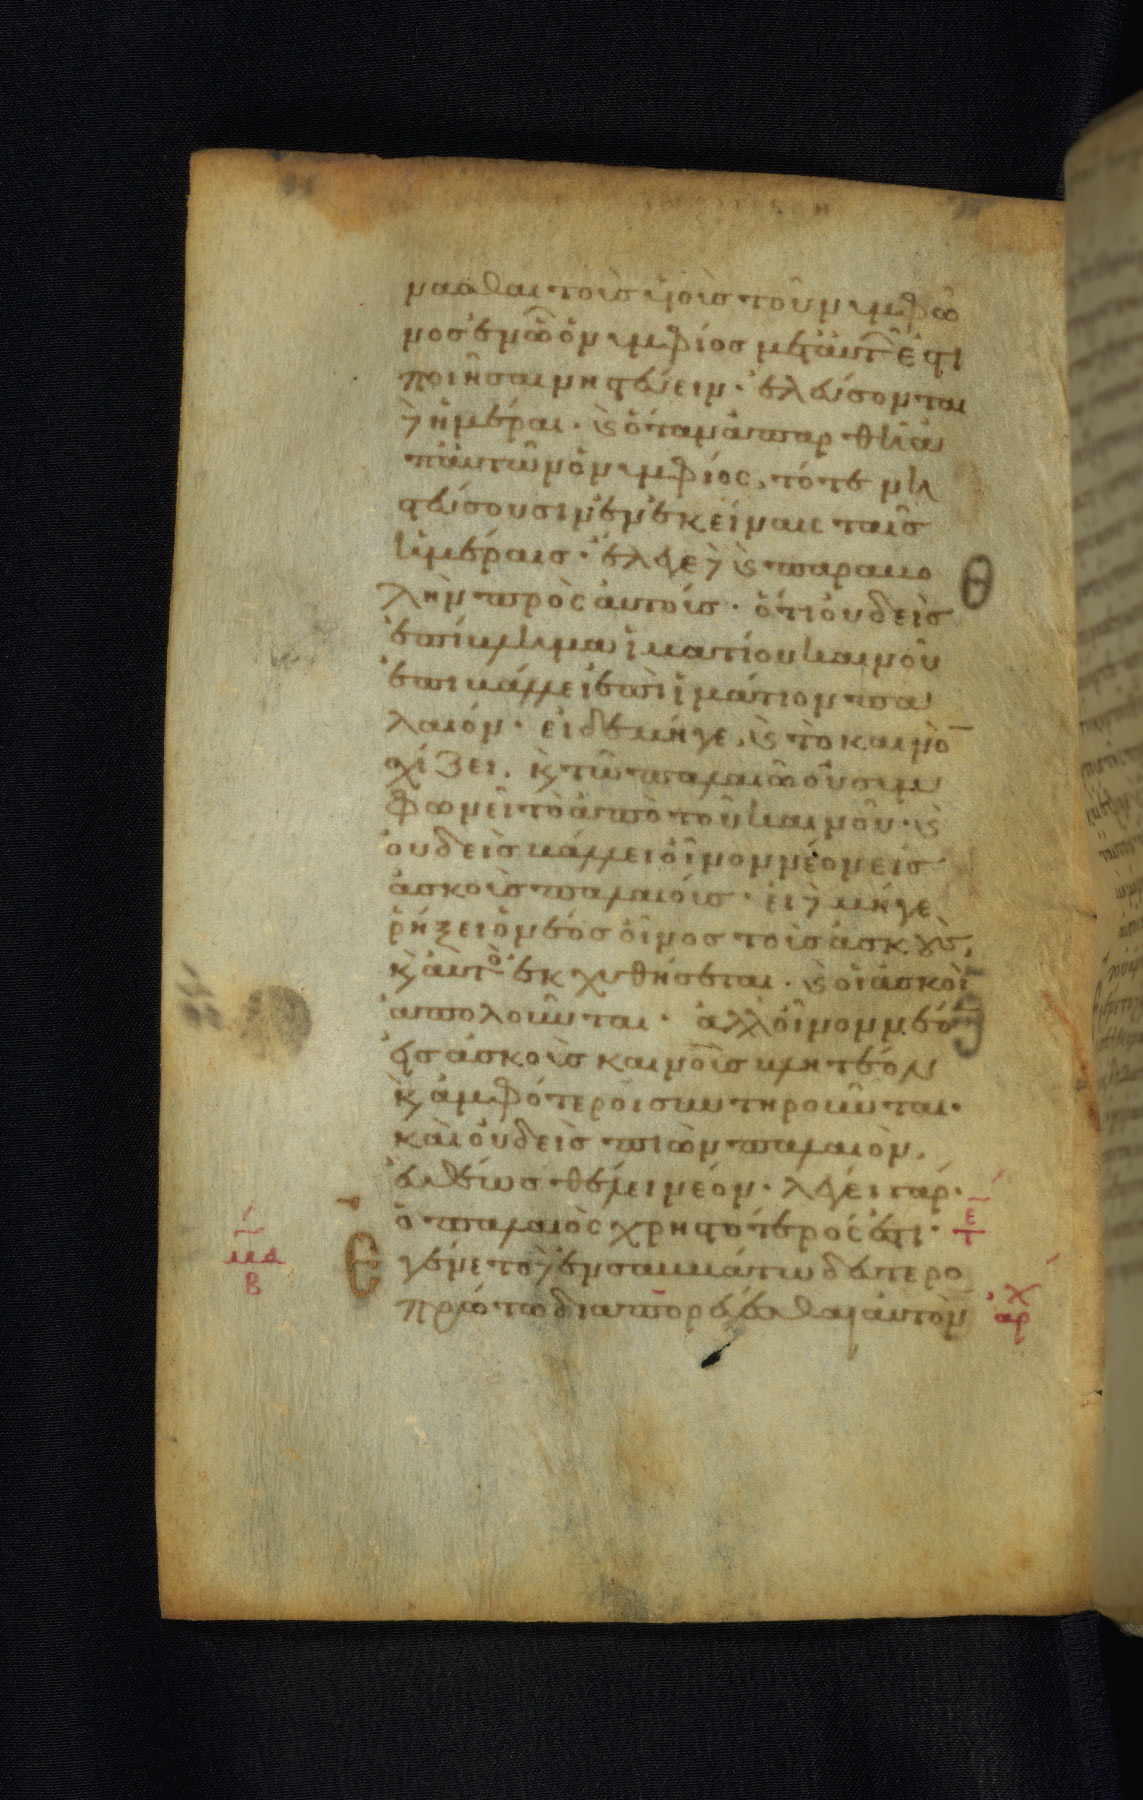 μασθαι τοὺς υἱοὺς τοῦ νυμφῶ
νος ἐν ᾧ ὁ νυμφίος μετ' αὐτῶν ἐστι
ποιῆσαι νηστεύειν· ἐλεύσονται
δὲ ἡμέραι· καὶ ὅταν ἀπαρθῆ ἀπ
αὐτῶν ὁ νυμφίος, τότε νη
στεύσουσιν ἐν ἐκείναις ταῖς
ἡμέραις· ἔλεγε δὲ καὶ παραβο
λὴν πρὸς αὐτοὺς· ὅτι οὐδεὶς
ἐπίβλημα ἱματίου καινοῦ
ἐπιβάλλει ἐπὶ ἱμάτιον πα
λαιόν· εἰ δὲ μήγε, καὶ τὸ καινὸν
σχίζει, κ τῶ παλαιῶ οὐ συμ
φωνεῖ τὸ ἀπὸ τοῦ καινοῦ· καὶ
οὐδεὶς βάλλει οἶνον νέον εἰς
ἀσκοὺς παλαιούς· εἰ δὲ μήγε
ῥήξει ὁ νέος οἶνος τοὺς ἀσκούς,
κ αὐτὸς ἐκχυθήσεται· καὶ οἱ ἀσκοὶ
ἀπολοῦνται· ἀλλ' οἶνον νέον
εἰς ἀσκοὺς καινοὺς βλητέον
κ ἀμφότεροι συντηροῦνται·
καὶ οὐδεὶς πιὼν παλαιὸν,
εὐθέως θέλει νέον· λέγει γάρ·
ὁ παλαιὸς χρηστότερός ἐστι·
Ἐγένετο δὲ ἐν σαββάτω δευτερο
πρώτω διαπορεύεσθαι αὐτὸν
Θ
Ε
Τ
μα
Β
ἀρχ